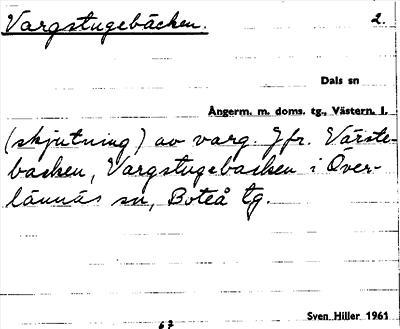 Vargstugebäcken. 2.
Dals sn
Ångerm. m. doms. tg., Västern. l.
(skjutning) av varg. Jfr. Värste-
backen, Vargstugebacken i Över-
lännäs sn, Boteå tg.
Sven Hiller 1961
67